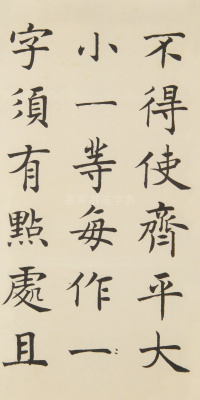 不得使齊平大
小一等每作一
字須有點處且